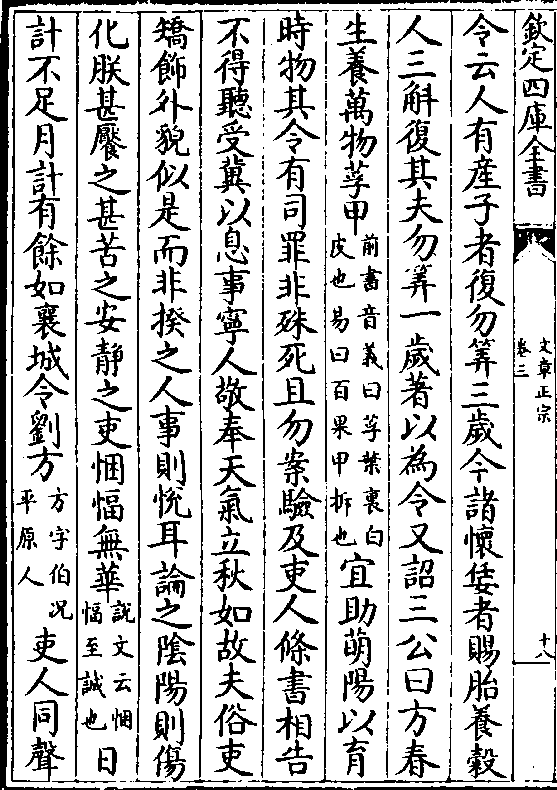 欽定四庫全書
文章正宗
卷三
十八
令云人有産子者復勿筭三歲今諸懷妊者賜胎養穀
人三斛復其夫勿筭一歲著以為令又詔三公曰方春
生養萬物莩甲前書音義曰莩葉裏白皮也易曰百果甲拆也宜助萌陽以育
時物其令有司罪非殊死且勿案驗及吏人條書相告
不得聽受冀以息事寧人敬奉天氣立秋如故夫俗吏
矯飾外貌似是而非揆之人事則悅耳論之陰陽則傷
化朕甚饜之甚苦之安静之吏悃愊無華說文云悃愊至誠也日
計不足月計有餘如襄城令劉方方字伯况平原人吏人同聲